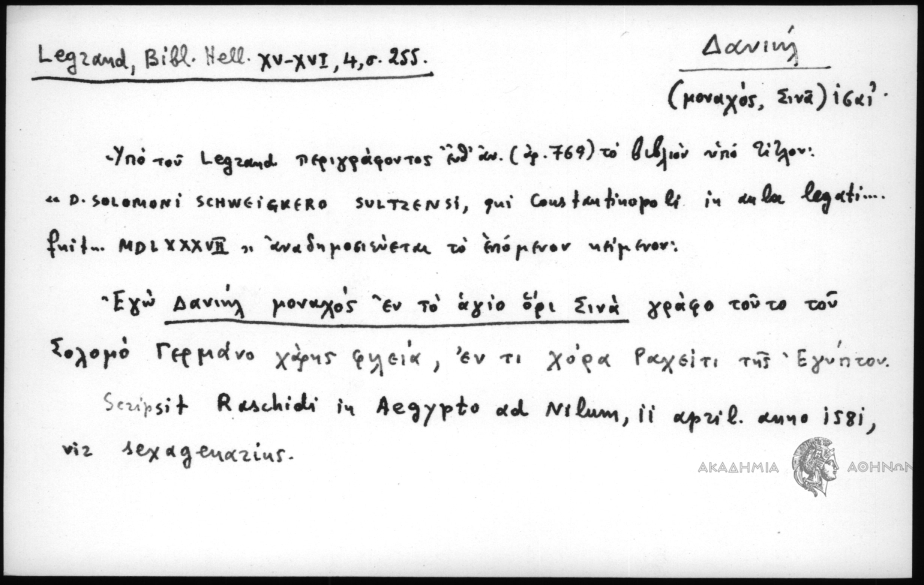 Legrand, Bibl. Hell. XV-XVI, 4, σ. 255.
Δανιήλ
(μοναχός, Σινᾶ) ις αἰ.
Ὑπὸ τοῦ Legrand περιγράφοντος ὑπ' ἀν. (ἀρ. 769) τὸ βιβλίον ὑπὸ τίτλον:
"D. SOLOMONI SCHWEIGKERO SULTZENSI, qui Constantinopoli in aula legati...
fuit... MDLXXXVII" ἀναδημοσιεύεται τὸ ἑπόμενον κείμενον:
Ἐγὼ Δανιήλ μοναχὸς ἐν τὸ ἁγίο ὄρι Σινὰ γράφο τοῦτο τοῦ
Σολομὸ Γερμάνο χάρης φιλειά, ἐν τι χόρα Ραχείτι τῆς Ἐγύπτου.
Scripsit Raschidi in Aegypto ad Nilum, ii april. anno i58i,
vir sexagenarius.
ΑΚΑΔΗΜΙΑ ΑΘΗΝΩΝ